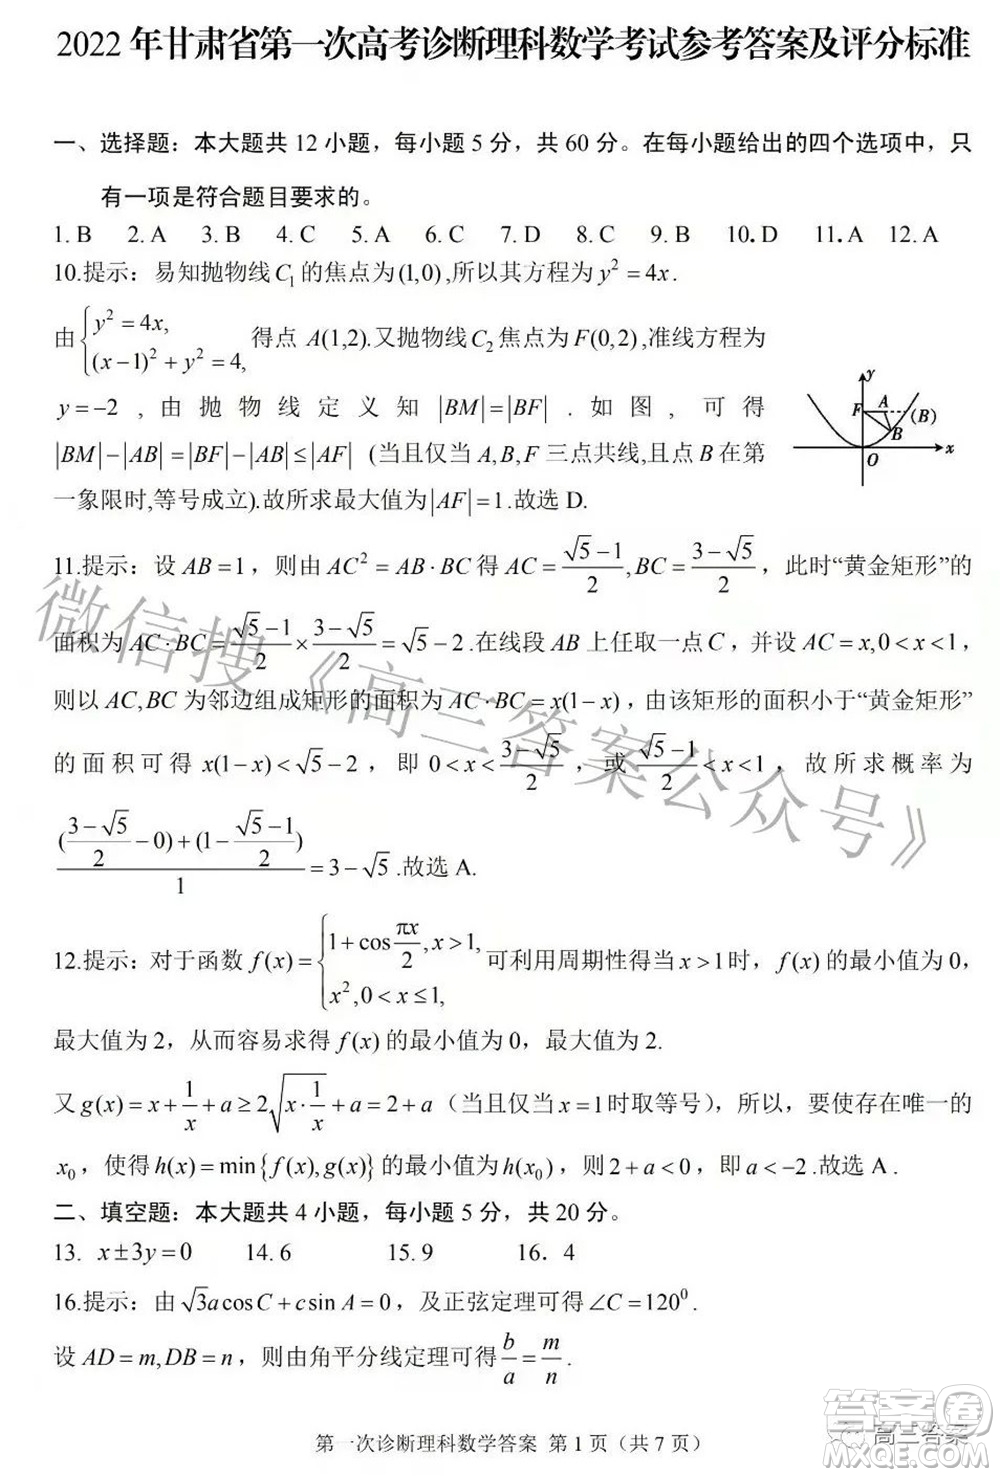 2022 年甘肃省第一次高考诊断理科数学考试参考答案及评分标准
一、选择题：本大题共 12 小题，每小题 5 分，共 60 分。在每小题给出的四个选项中，只
有一项是符合题目要求的。
1. B 2. A 3. B 4. C 5. A 6. C 7. D 8. C 9. B 10. D 11. A 12. A
10.提示：易知抛物线 C₁ 的焦点为(1,0),所以其方程为 y² = 4x .
由 { y² = 4x, (x−1)² + y² = 4, 得点 A(1,2).又抛物线 C₂ 焦点为 F(0,2) ,准线方程为
y = −2 ，由抛物线定义知 |BM| = |BF| . 如图，可得
|BM| − |AB| = |BF| − |AB| ≤ |AF| (当且仅当 A, B, F 三点共线,且点 B 在第
一象限时,等号成立).故所求最大值为 |AF| = 1.故选 D.
y F A (B) B O x
11.提示：设 AB = 1，则由 AC² = AB · BC 得 AC = (√5−1)/2 , BC = (3−√5)/2，此时“黄金矩形”的
面积为 AC · BC = (√5−1)/2 × (3−√5)/2 = √5 − 2 .在线段 AB 上任取一点 C，并设 AC = x, 0 < x < 1，
则以 AC, BC 为邻边组成矩形的面积为 AC · BC = x(1−x)，由该矩形的面积小于“黄金矩形”
的面积可得 x(1−x) < √5 − 2 ，即 0 < x < (3−√5)/2 ，或 (√5−1)/2 < x < 1，故所求概率为
(((3−√5)/2 − 0) + (1 − (√5−1)/2))/1 = 3 − √5 .故选 A.
12.提示：对于函数 f(x) = { 1 + cos(πx/2), x > 1, x², 0 < x ≤ 1, 可利用周期性得当 x > 1 时，f(x) 的最小值为 0，
最大值为 2，从而容易求得 f(x) 的最小值为 0，最大值为 2.
又 g(x) = x + 1/x + a ≥ 2√(x · 1/x) + a = 2 + a（当且仅当 x = 1 时取等号），所以，要使存在唯一的
x₀，使得 h(x) = min{f(x), g(x)} 的最小值为 h(x₀)，则 2 + a < 0，即 a < −2 .故选 A .
二、填空题：本大题共 4 小题，每小题 5 分，共 20 分。
13. x ± 3y = 0 14. 6 15. 9 16．4
16.提示：由 √3a cos C + c sin A = 0，及正弦定理可得 ∠C = 120⁰ .
设 AD = m, DB = n，则由角平分线定理可得 b/a = m/n .
第一次诊断理科数学答案 第 1 页（共 7 页）
微信搜《高三答案公众号》
答案圈
高三答案
MXQE.COM